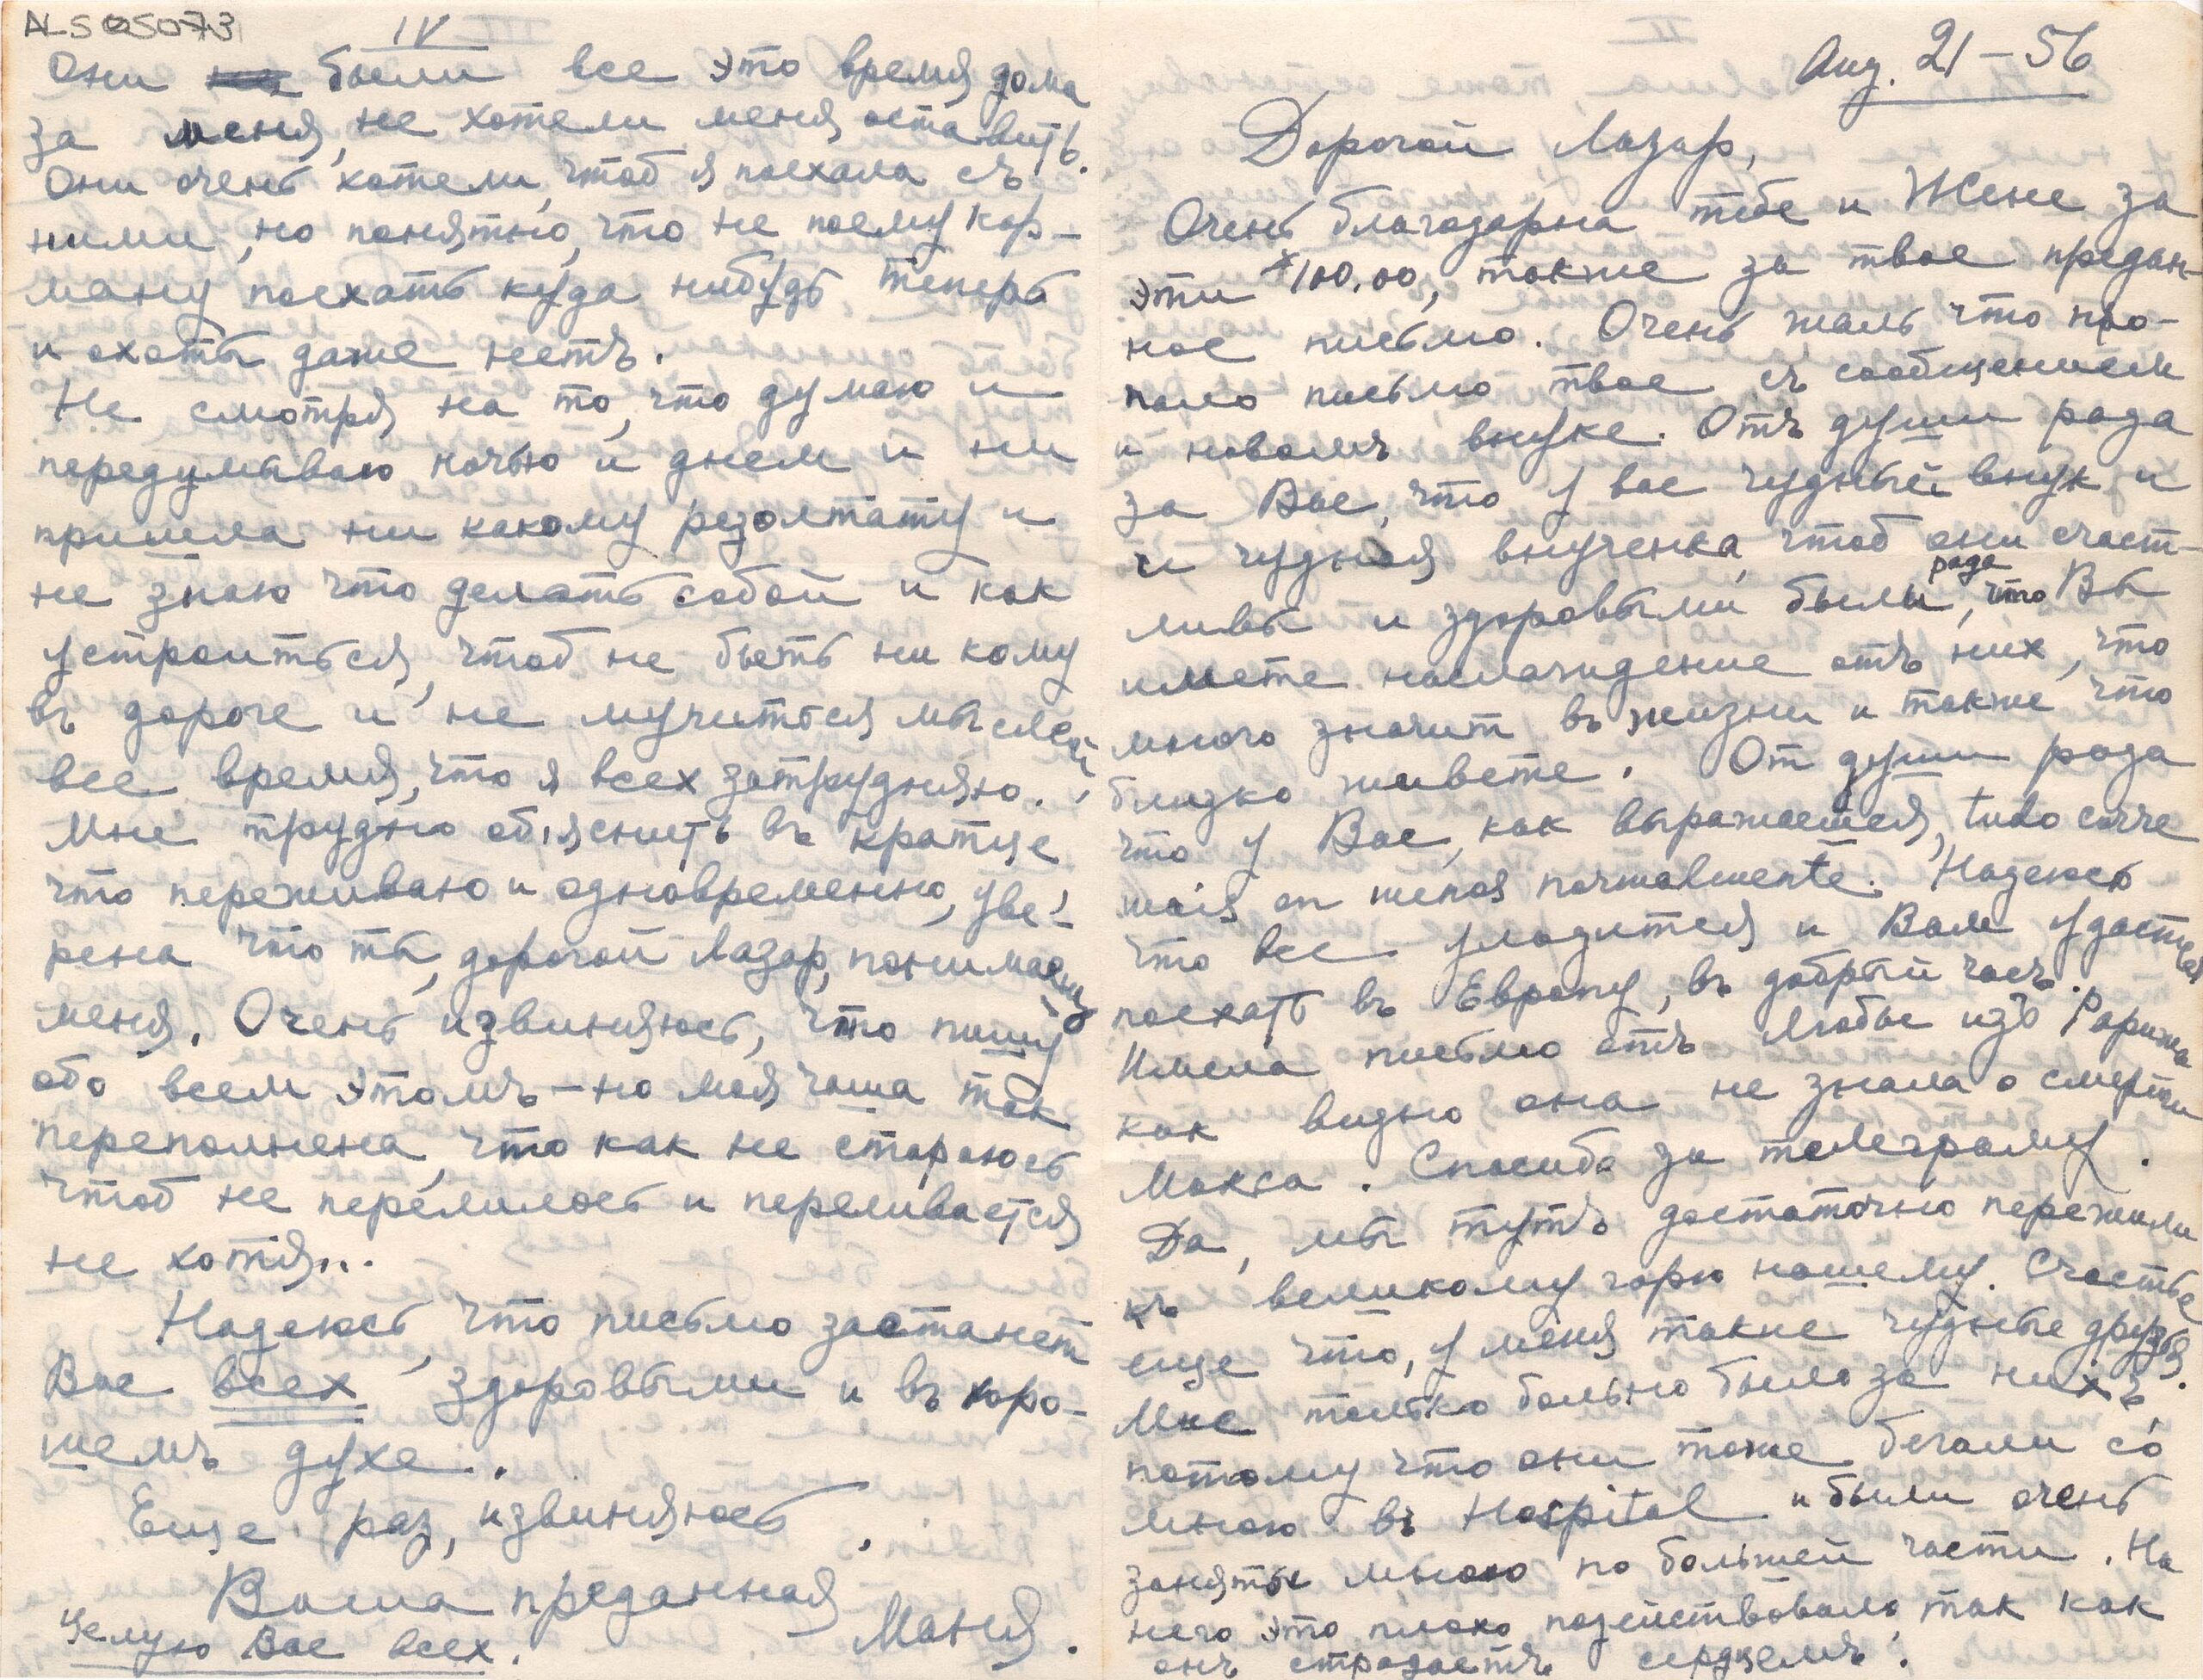 ALS 05073
Aug. 21 – 56
Дорогой Лазар,
Очень благодарна тебе и Жене за
эти $100.00, также за твое предан-
ное письмо. Очень жаль что про-
пало письмо твое съ сообщением
и новомъ внуке. Отъ души рада
за Вас, что у вас чудный внук и
и чудная внученка, чтоб они счаст-
ливы и здоровыми были, рада что Вы
имете наслаждение отъ них, что
много значит въ жизни и также что
близко живете. От души рада
что у Вас, как выражаешся, tudo corre
mais on menos normalmente. Надеюсь
что все уладится и Вам удастся
поехать въ Европу, въ добрый часъ.
Имела письмо отъ Любы изъ Parижа
как видно она не знала о смерти
Макса. Спасибо за телеграму.
Да, мы тутъ достаточно пережили
къ великому горю нашему. Счастье
еще что, у меня такие чудные друзья.
Мне только больно было за нихъ,
потому что они тоже бегали со
мною въ Hospital и были очень
заняты мною по большей части. На
него это плохо подействовало, так как
онъ страдаетъ сердцемъ.
IV
Они были все это время дома
за меня, не хотели меня оставить.
Они очень хотели, чтоб я поехала съ
ними, но понятно, что не поему кар-
ману поехать куда нибудь, теперь
и охоты даже нетъ.
Не смотря на то, что думаю и
передумываю ночью и днем и ни
пришла ни какому резолтату и
не знаю что делать собой и как
устроиться, чтоб не быть ни кому
въ дороге и не мучиться мыслей
все время, что я всех затрудняю.
Мне трудно обяснить въ кратце
что переживаю и одновременно, уве-
рена что ты, дорогой Лазар, понимаешь
меня. Очень извиняюсь, что пишу
обо всем этомъ – но моя чаша так
переполнена, что как не стараюсь
чтоб не перелилось и переливается
не хотя...
Надеюсь, что письмо застанет
Вас всех здоровыми и въ хоро-
шемъ духе.
Еще раз, извиняюсь,
Ваша преданная
Маня.
Целую Вас всех.